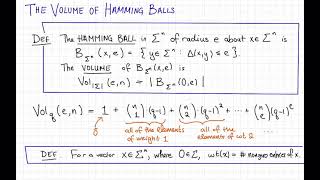 THE VOLUME OF HAMMING BALLS
DEF. THE HAMMING BALL in Σⁿ of radius e about x∈Σⁿ is
B_Σⁿ(x,e) = { y∈Σⁿ : Δ(x,y) ≤ e }.
The VOLUME of B_Σⁿ(x,e) is
Vol_|Σ|(e,n) = | B_Σⁿ(0,e) |
Vol_q(e,n) = 1 + (n 1)(q-1) + (n 2)(q-1)² + ··· + (n e)(q-1)^e
0
all of the elements of weight 1
all of the elements of wt 2
···
DEF. For a vector x∈Σⁿ, where 0∈Σ, wt(x) = # nonzero entries of x.